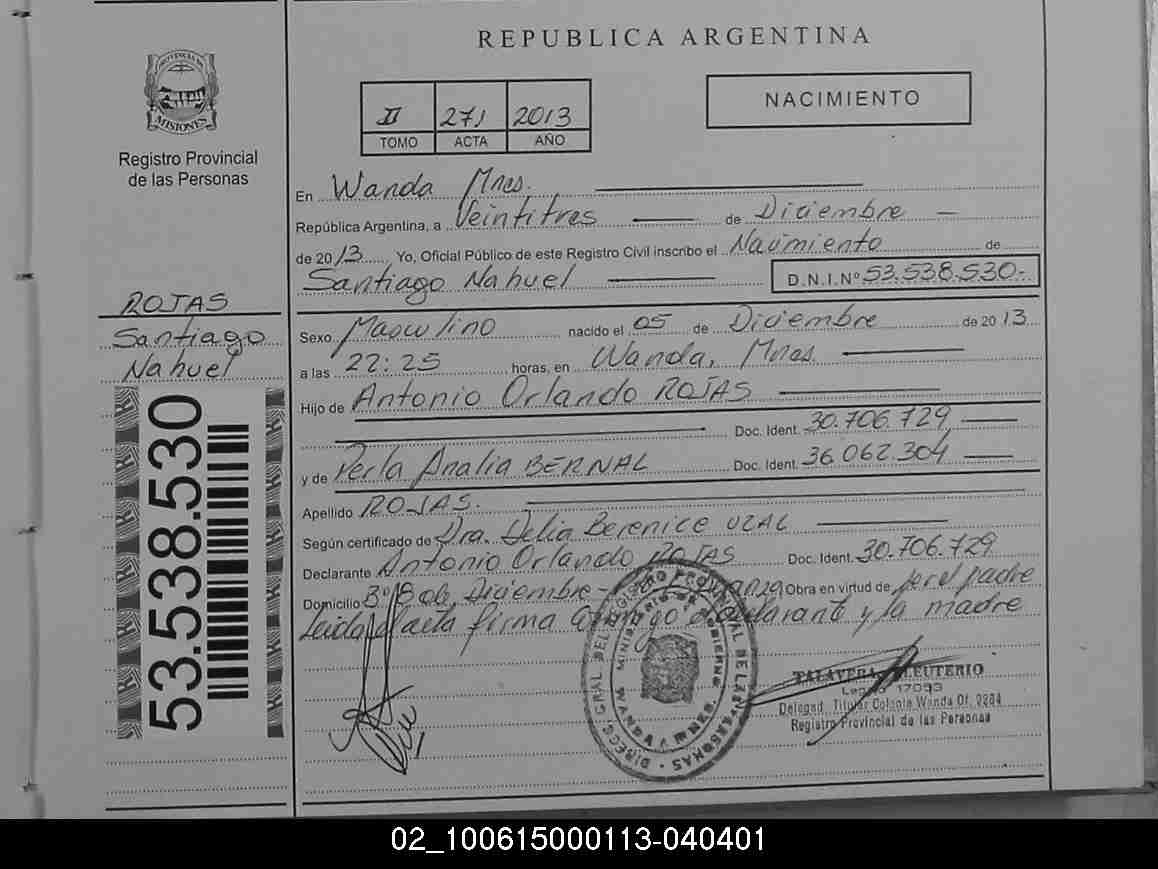 REPUBLICA ARGENTINA
PROVINCIA DE
MISIONES
Registro Provincial
de las Personas
II 271 2013
TOMO ACTA AÑO
NACIMIENTO
En Wanda Mnes.
República Argentina, a Veintitres de Diciembre
de 2013 Yo, Oficial Público de este Registro Civil inscribo el Nacimiento de
Santiago Nahuel D.N.I.Nº 53.538.530.-
Sexo Masculino nacido el 05 de Diciembre de 2013
a las 22:25 horas, en Wanda, Mnes.
Hijo de Antonio Orlando ROJAS
Doc. Ident. 30.706.729,
y de Perla Analia BERNAL Doc. Ident. 36.062.304
Apellido ROJAS.
Según certificado de Dra. Delia Berenice UZAL
Declarante Antonio Orlando ROJAS Doc. Ident. 30.706.729
Domicilio Bº 8 de Diciembre - Obra en virtud de ser el padre
Leida el acta firma conmigo el declarante y la madre
ROJAS
Santiago
Nahuel
53.538.530
DIRECC. GRAL. DEL REGISTRO PROVINCIAL DE LAS PERSONAS
MINISTERIO DE GOBIERNO
WANDA MNES.
TALAVERA ELEUTERIO
Legajo 17093
Delegad. Titular Colonia Wanda Of. 9284
Registro Provincial de las Personas
02_100615000113-040401